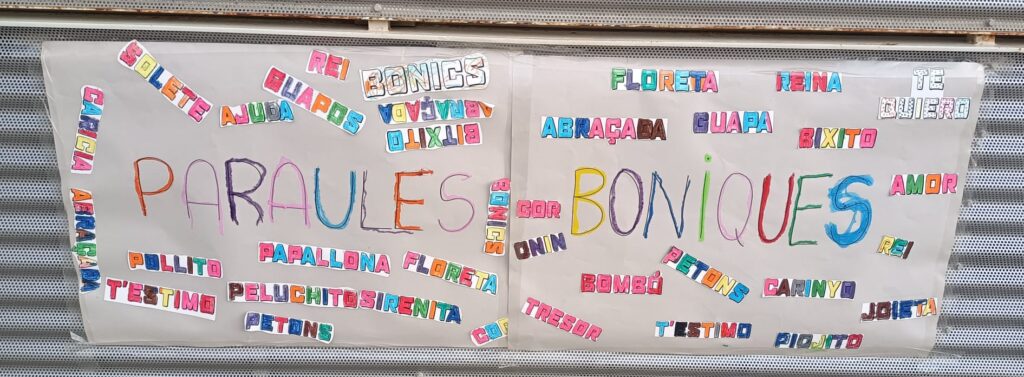 SOLETE
REI
GUAPOS
AJUDA
BONICS
ABRAÇADA
BITXITO
CARICIA
ABRAÇADA
PARAULES
BONICS
POLLITO
PAPALLONA
FLORETA
T'ESTIMO
PELUCHITO
SIRENITA
PETONS
COR
FLORETA
REINA
TE
QUIERO
ABRAÇADA
GUAPA
BIXITO
AMOR
COR
BONIQUES
ONIN
REI
BOMBÓ
PETONS
CARINYO
JOIETA
TRESOR
T'ESTIMO
PIOJITO